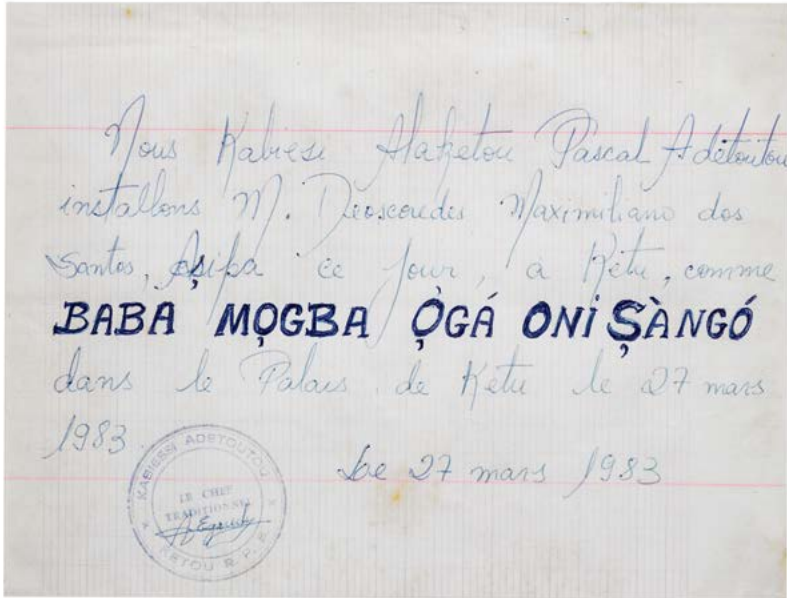 Nous Kabiesi Alaketou Pascal Adétoutou
installons M. Deoscoredes Maximiliano dos
Santos, Aṣipa ce jour, a Ketu, comme
BABA MỌGBA ỌGÁ ONI ṢÀNGÓ
dans le Palais de Ketu le 27 mars
1983.
Le 27 mars 1983
KABIESSI ADETOUTOU
LE CHEF
TRADITIONNEL
KETOU R. P. B.